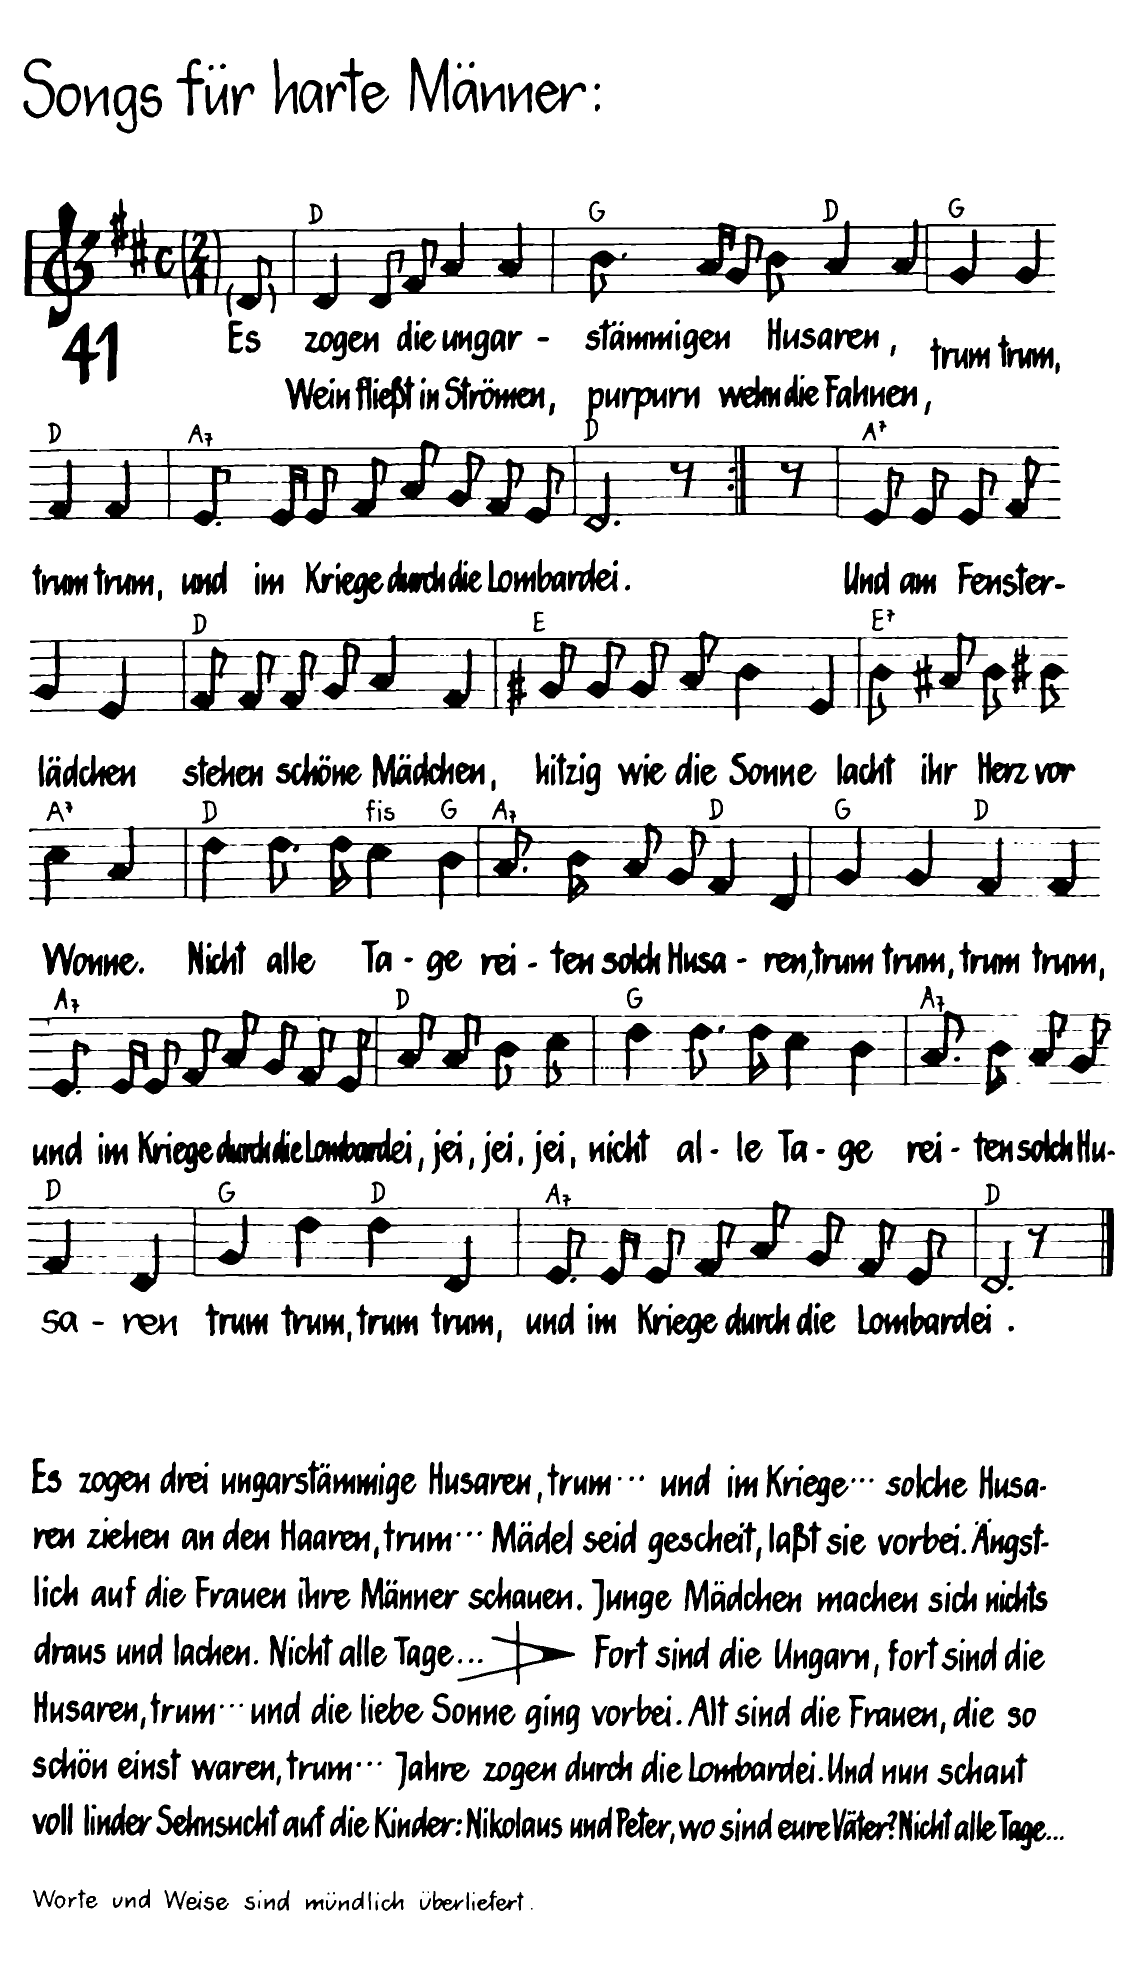 Songs für harte Männer:
D G D G
C (2/4)
41
Es zogen die ungar - stämmigen Husaren, trum trum,
Wein fließt in Strömen, purpurn wehn die Fahnen,
D A7 D A7
trum trum, und im Kriege durch die Lombardei. Und am Fenster-
D E E7
lädchen stehen schöne Mädchen, hitzig wie die Sonne lacht ihr Herz vor
A7 D fis G A7 D G D
Wonne. Nicht alle Ta - ge rei - ten solch Husa - ren, trum trum, trum trum,
A7 D G A7
und im Kriege durch die Lombardei, jei, jei, jei, nicht al - le Ta - ge rei - ten solch Hu-
D G D A7 D
sa - ren trum trum, trum trum, und im Kriege durch die Lombardei .
Es zogen drei ungarstämmige Husaren, trum ··· und im Kriege ··· solche Husa-
ren ziehen an den Haaren, trum ··· Mädel seid gescheit, laßt sie vorbei. Ängst-
lich auf die Frauen ihre Männer schauen. Junge Mädchen machen sich nichts
draus und lachen. Nicht alle Tage... Fort sind die Ungarn, fort sind die
Husaren, trum ··· und die liebe Sonne ging vorbei. Alt sind die Frauen, die so
schön einst waren, trum ··· Jahre zogen durch die Lombardei. Und nun schaut
voll linder Sehnsucht auf die Kinder: Nikolaus und Peter, wo sind eure Väter? Nicht alle Tage...
Worte und Weise sind mündlich überliefert.